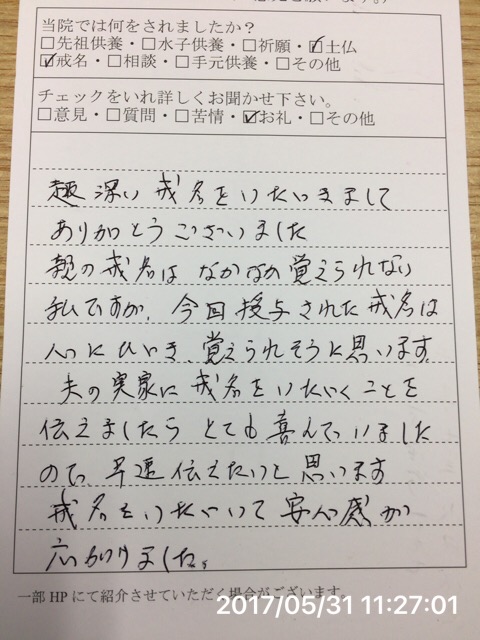 当院では何をされましたか?
□先祖供養・□水子供養・□祈願・☑土仏
☑戒名・□相談・□手元供養・□その他
チェックをいれ詳しくお聞かせ下さい。
□意見・□質問・□苦情・☑お礼・□その他
趣深い戒名をいただきまして
ありがとうございました
親の戒名はなかなか覚えられない
私ですが、今回授与された戒名は
心にひびき、覚えられそうに思います
夫の実家に戒名をいただくことを
伝えましたらとても喜んでいました
ので、早速伝えたいと思います
戒名をいただいて安心感が
広がりました。
一部HPにて紹介させていただく場合がございます。
2017/05/31 11:27:01